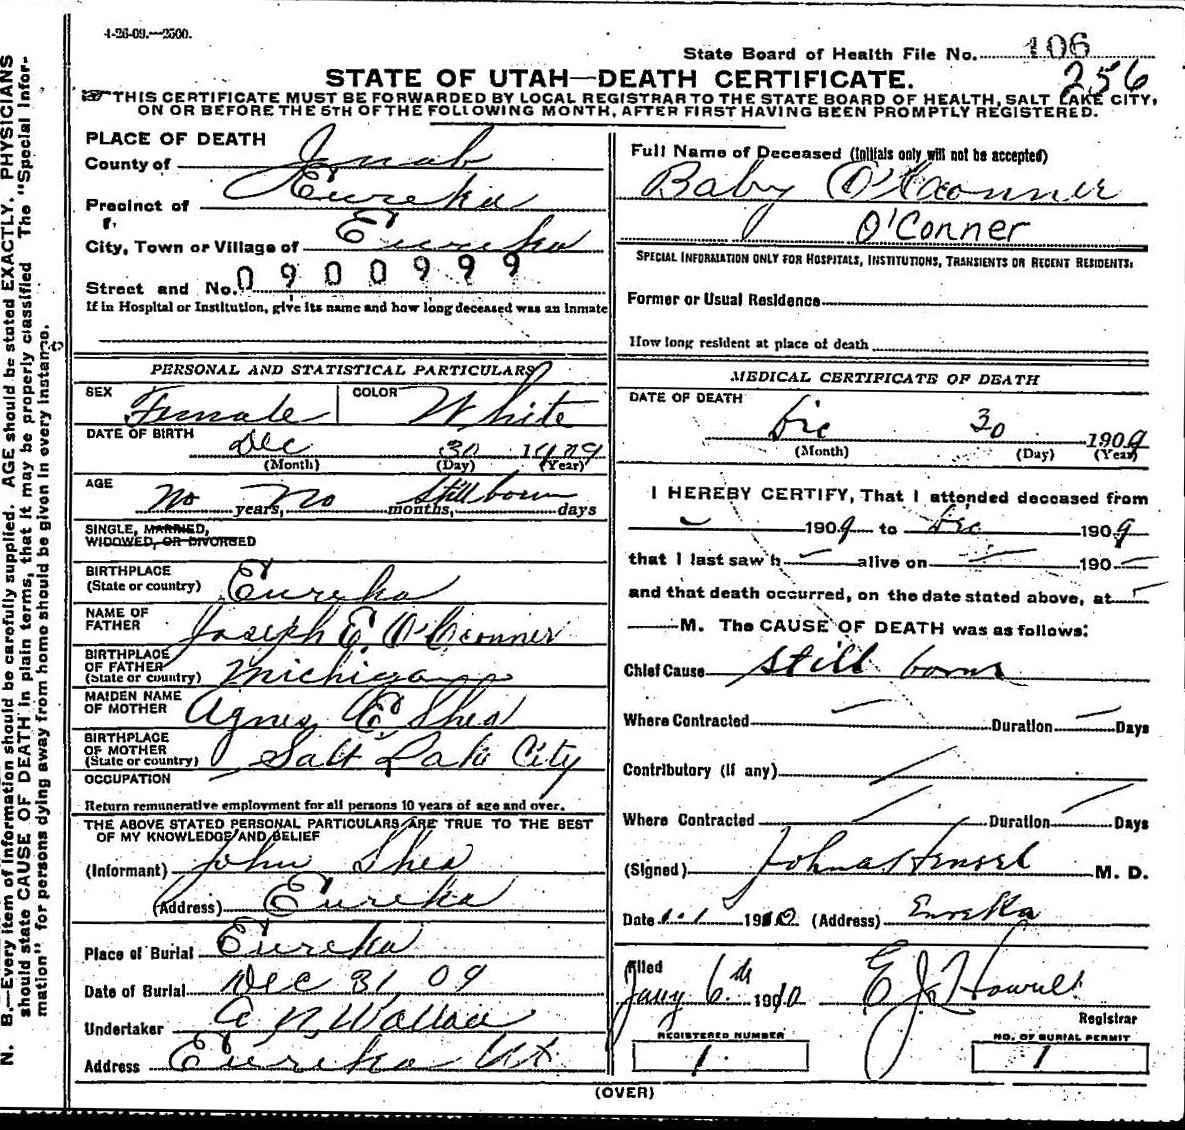 4-26-09.—2500.
State Board of Health File No. 106
256
STATE OF UTAH—DEATH CERTIFICATE.
THIS CERTIFICATE MUST BE FORWARDED BY LOCAL REGISTRAR TO THE STATE BOARD OF HEALTH, SALT LAKE CITY,
ON OR BEFORE THE 5TH OF THE FOLLOWING MONTH, AFTER FIRST HAVING BEEN PROMPTLY REGISTERED.
PLACE OF DEATH
County of Juab
Precinct of Eureka
City, Town or Village of Eureka
Street and No. 0900999
If in Hospital or Institution, give its name and how long deceased was an inmate
PERSONAL AND STATISTICAL PARTICULARS
SEX Female COLOR White
DATE OF BIRTH Dec 30 1909
(Month) (Day) (Year)
AGE No years, No months, Still born days
SINGLE, MARRIED,
WIDOWED, OR DIVORCED
BIRTHPLACE
(State or country) Eureka
NAME OF
FATHER Joseph E O'Conner
BIRTHPLACE
OF FATHER
(State or country) Michigan
MAIDEN NAME
OF MOTHER Agnes E Shea
BIRTHPLACE
OF MOTHER
(State or country) Salt Lake City
OCCUPATION
Return remunerative employment for all persons 10 years of age and over.
THE ABOVE STATED PERSONAL PARTICULARS ARE TRUE TO THE BEST
OF MY KNOWLEDGE AND BELIEF
(Informant) John Shea
(Address) Eureka
Place of Burial Eureka
Date of Burial Dec 31, 09
Undertaker A N. Wallace
Address Eureka Ut
Full Name of Deceased (Initials only will not be accepted)
Baby O'Conner
O'Conner
SPECIAL INFORMATION ONLY FOR HOSPITALS, INSTITUTIONS, TRANSIENTS OR RECENT RESIDENTS:
Former or Usual Residence
How long resident at place of death
MEDICAL CERTIFICATE OF DEATH
DATE OF DEATH
Dec 30 1909
(Month) (Day) (Year)
I HEREBY CERTIFY, That I attended deceased from
1909 to Dec 1909
that I last saw h — alive on — 190 —
and that death occurred, on the date stated above, at —
— M. The CAUSE OF DEATH was as follows:
Chief Cause Still born
Where Contracted — Duration — Days
Contributory (If any)
Where Contracted — Duration — Days
(Signed) John M. D.
Date 1.1 1910 (Address) Eureka
Filed
Jany 6th 1910 E J Howell
Registrar
REGISTERED NUMBER
1
NO. OF BURIAL PERMIT
1
(OVER)
N. B.—Every item of information should be carefully supplied. AGE should be stated EXACTLY. PHYSICIANS
should state CAUSE OF DEATH in plain terms, that it may be properly classified The "Special Infor-
mation" for persons dying away from home should be given in every instance.